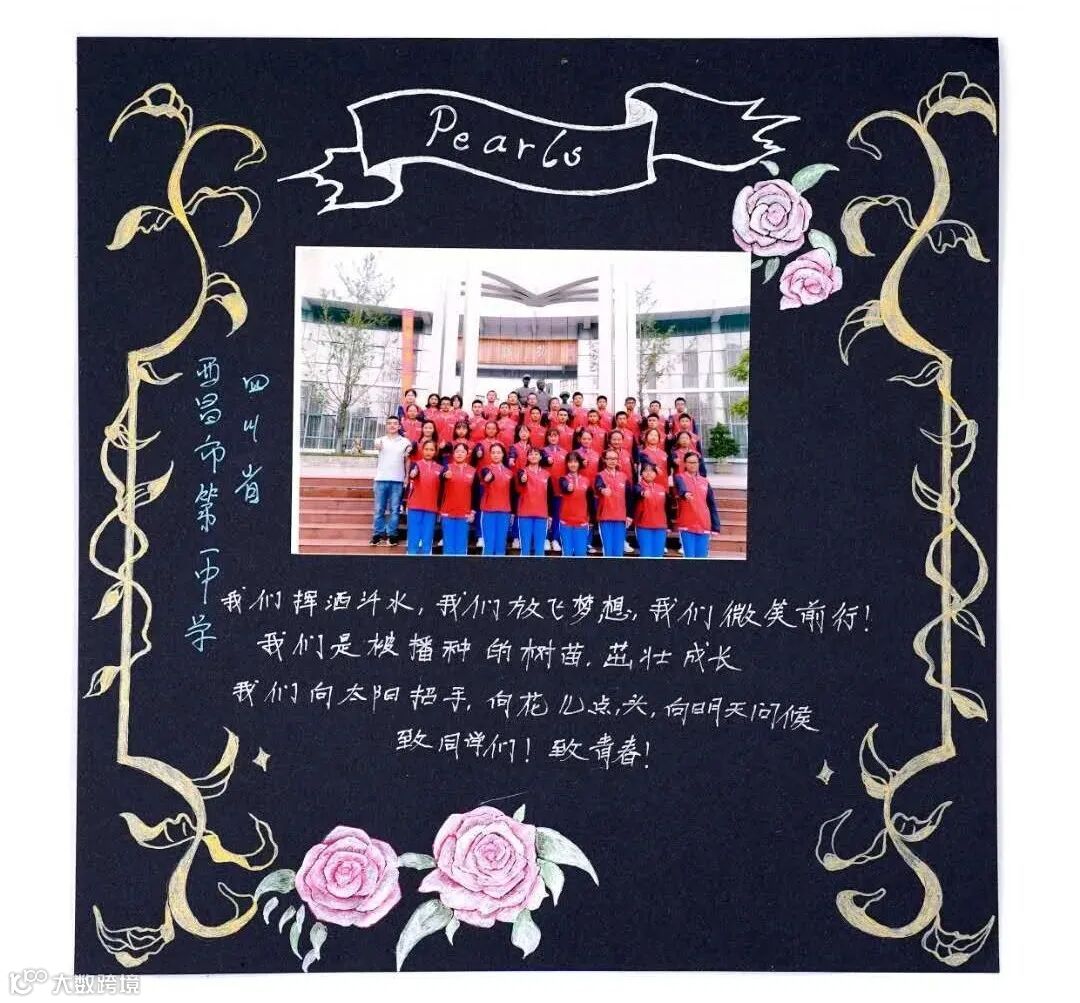 Pearls
四川省
西昌市第一中学
我们挥洒汗水,我们放飞梦想,我们微笑前行!
我们是被播种的树苗,茁壮成长
我们向太阳招手,向花儿点头,向明天问候
致同学们!致青春!
大数跨境